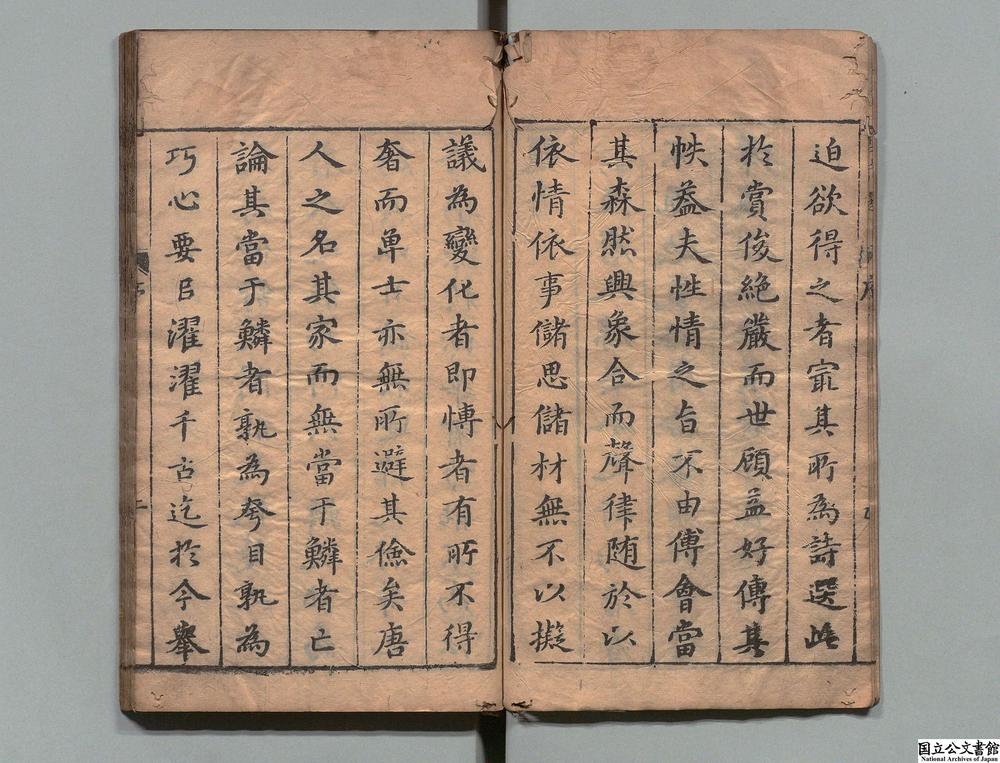 迫欲得之者寘其所為詩選此
於賞俊絶嚴而世顧益好傳其
帙葢夫性情之旨不由傅會當
其森然興象合而聲律随於以
依情依事儲思儲材無不以擬
議為變化者即慱者有所不得
奢而单士亦無所避其儉矣唐
人之名其家而無當于鱗者亡
論其當于鱗者孰為夸目孰為
巧心要㠯濯濯千古迄於今舉
国立公文書館
National Archives of Japan